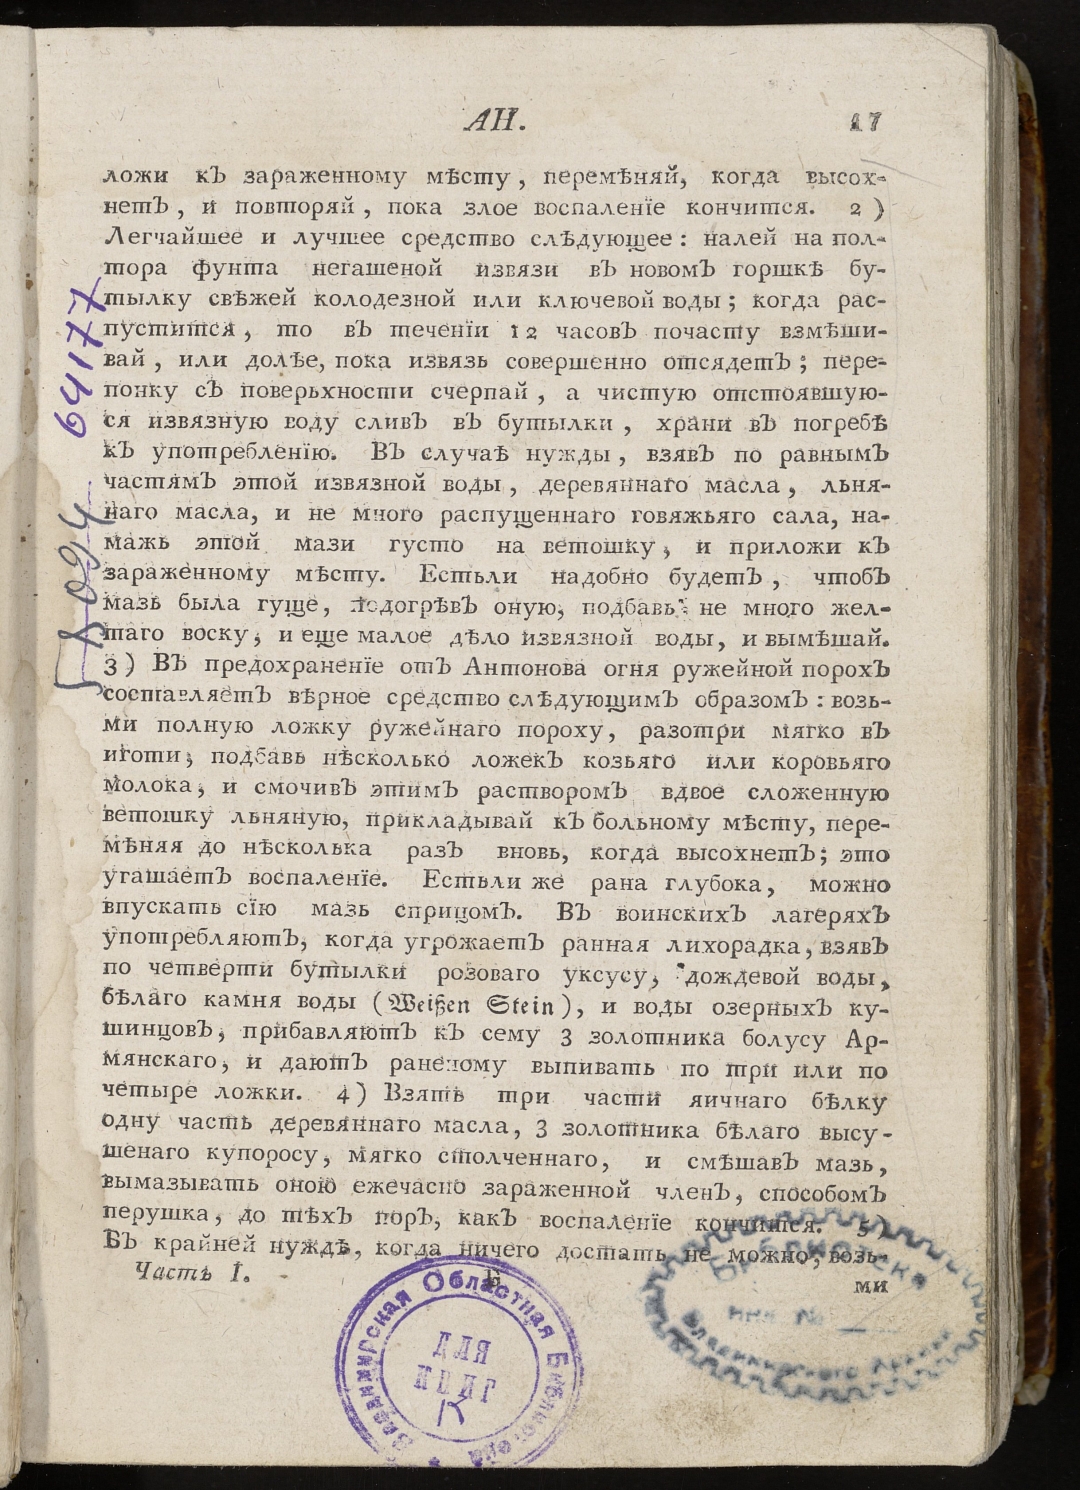 АН.
17
ложи къ зараженному мѣсту, перемѣняй, когда высох-
нетъ, и повторяй, пока злое воспаленїе кончится. 2)
Легчайшее и лучшее средство слѣдующее: налей на пол-
тора фунта негашеной извязи въ новомъ горшкѣ бу-
тылку свѣжей колодезной или ключевой воды; когда рас-
пустится, то въ теченїи 12 часовъ почасту взмѣши-
вай, или долѣе, пока извязь совершенно отсядетъ; пере-
понку съ поверьхности счерпай, а чистую отстоявшую-
ся извязную воду сливъ въ бутылки, храни въ погребѣ
къ употребленїю. Въ случаѣ нужды, взявъ по равнымъ
частямъ этой извязной воды, деревяннаго масла, льня-
наго масла, и не много распущеннаго говяжьяго сала, на-
мажь этой мази густо на ветошку, и приложи къ
зараженному мѣсту. Естьли надобно будетъ, чтобъ
мазь была гуще, подогрѣвъ оную, подбавь не много жел-
таго воску, и еще малое дѣло извязной воды, и вымѣшай.
3) Въ предохраненїе отъ Антонова огня ружейной порохъ
составляетъ вѣрное средство слѣдующимъ образомъ: возь-
ми полную ложку ружейнаго пороху, разотри мягко въ
иготи; подбавь нѣсколько ложекъ козьяго или коровьяго
молока, и смочивъ этимъ растворомъ вдвое сложенную
ветошку льняную, прикладывай къ больному мѣсту, пере-
мѣняя до нѣсколька разъ вновь, когда высохнетъ; это
угашаетъ воспаленїе. Естьли же рана глубока, можно
впускать сїю мазь сприцомъ. Въ воинскихъ лагеряхъ
употребляютъ, когда угрожаетъ ранная лихорадка, взявъ
по четверти бутылки розоваго уксусу, дождевой воды,
бѣлаго камня воды (Weißen Stein), и воды озерныхъ ку-
шинцовъ, прибавляютъ къ сему 3 золотника болусу Ар-
мянскаго, и даютъ раненому выпивать по три или по
четыре ложки. 4) Взять три части яичнаго бѣлку
одну часть деревяннаго масла, 3 золотника бѣлаго высу-
шенаго купоросу, мягко столченнаго, и смѣшавъ мазь,
вымазывать оною ежечасно зараженной членъ, способомъ
перушка, до тѣхъ поръ, какъ воспаленїе кончится. 5)
Въ крайней нуждѣ, когда ничего достать не можно, возь-
Часть I.
Б
ми
64177
Владимирская Областная Библиотека
ДЛЯ
КНИГ
Библиотека